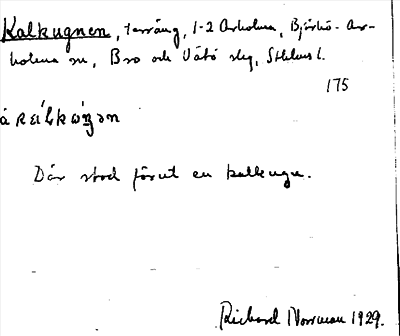 Kalkugnen, terräng, 1-2 Arholma, Björkö-Ar-
holma sn, Bro och Vätö slg, Sthlms l.
175
å
Där stod förut en kalkugn.
Richard Norrman 1929.